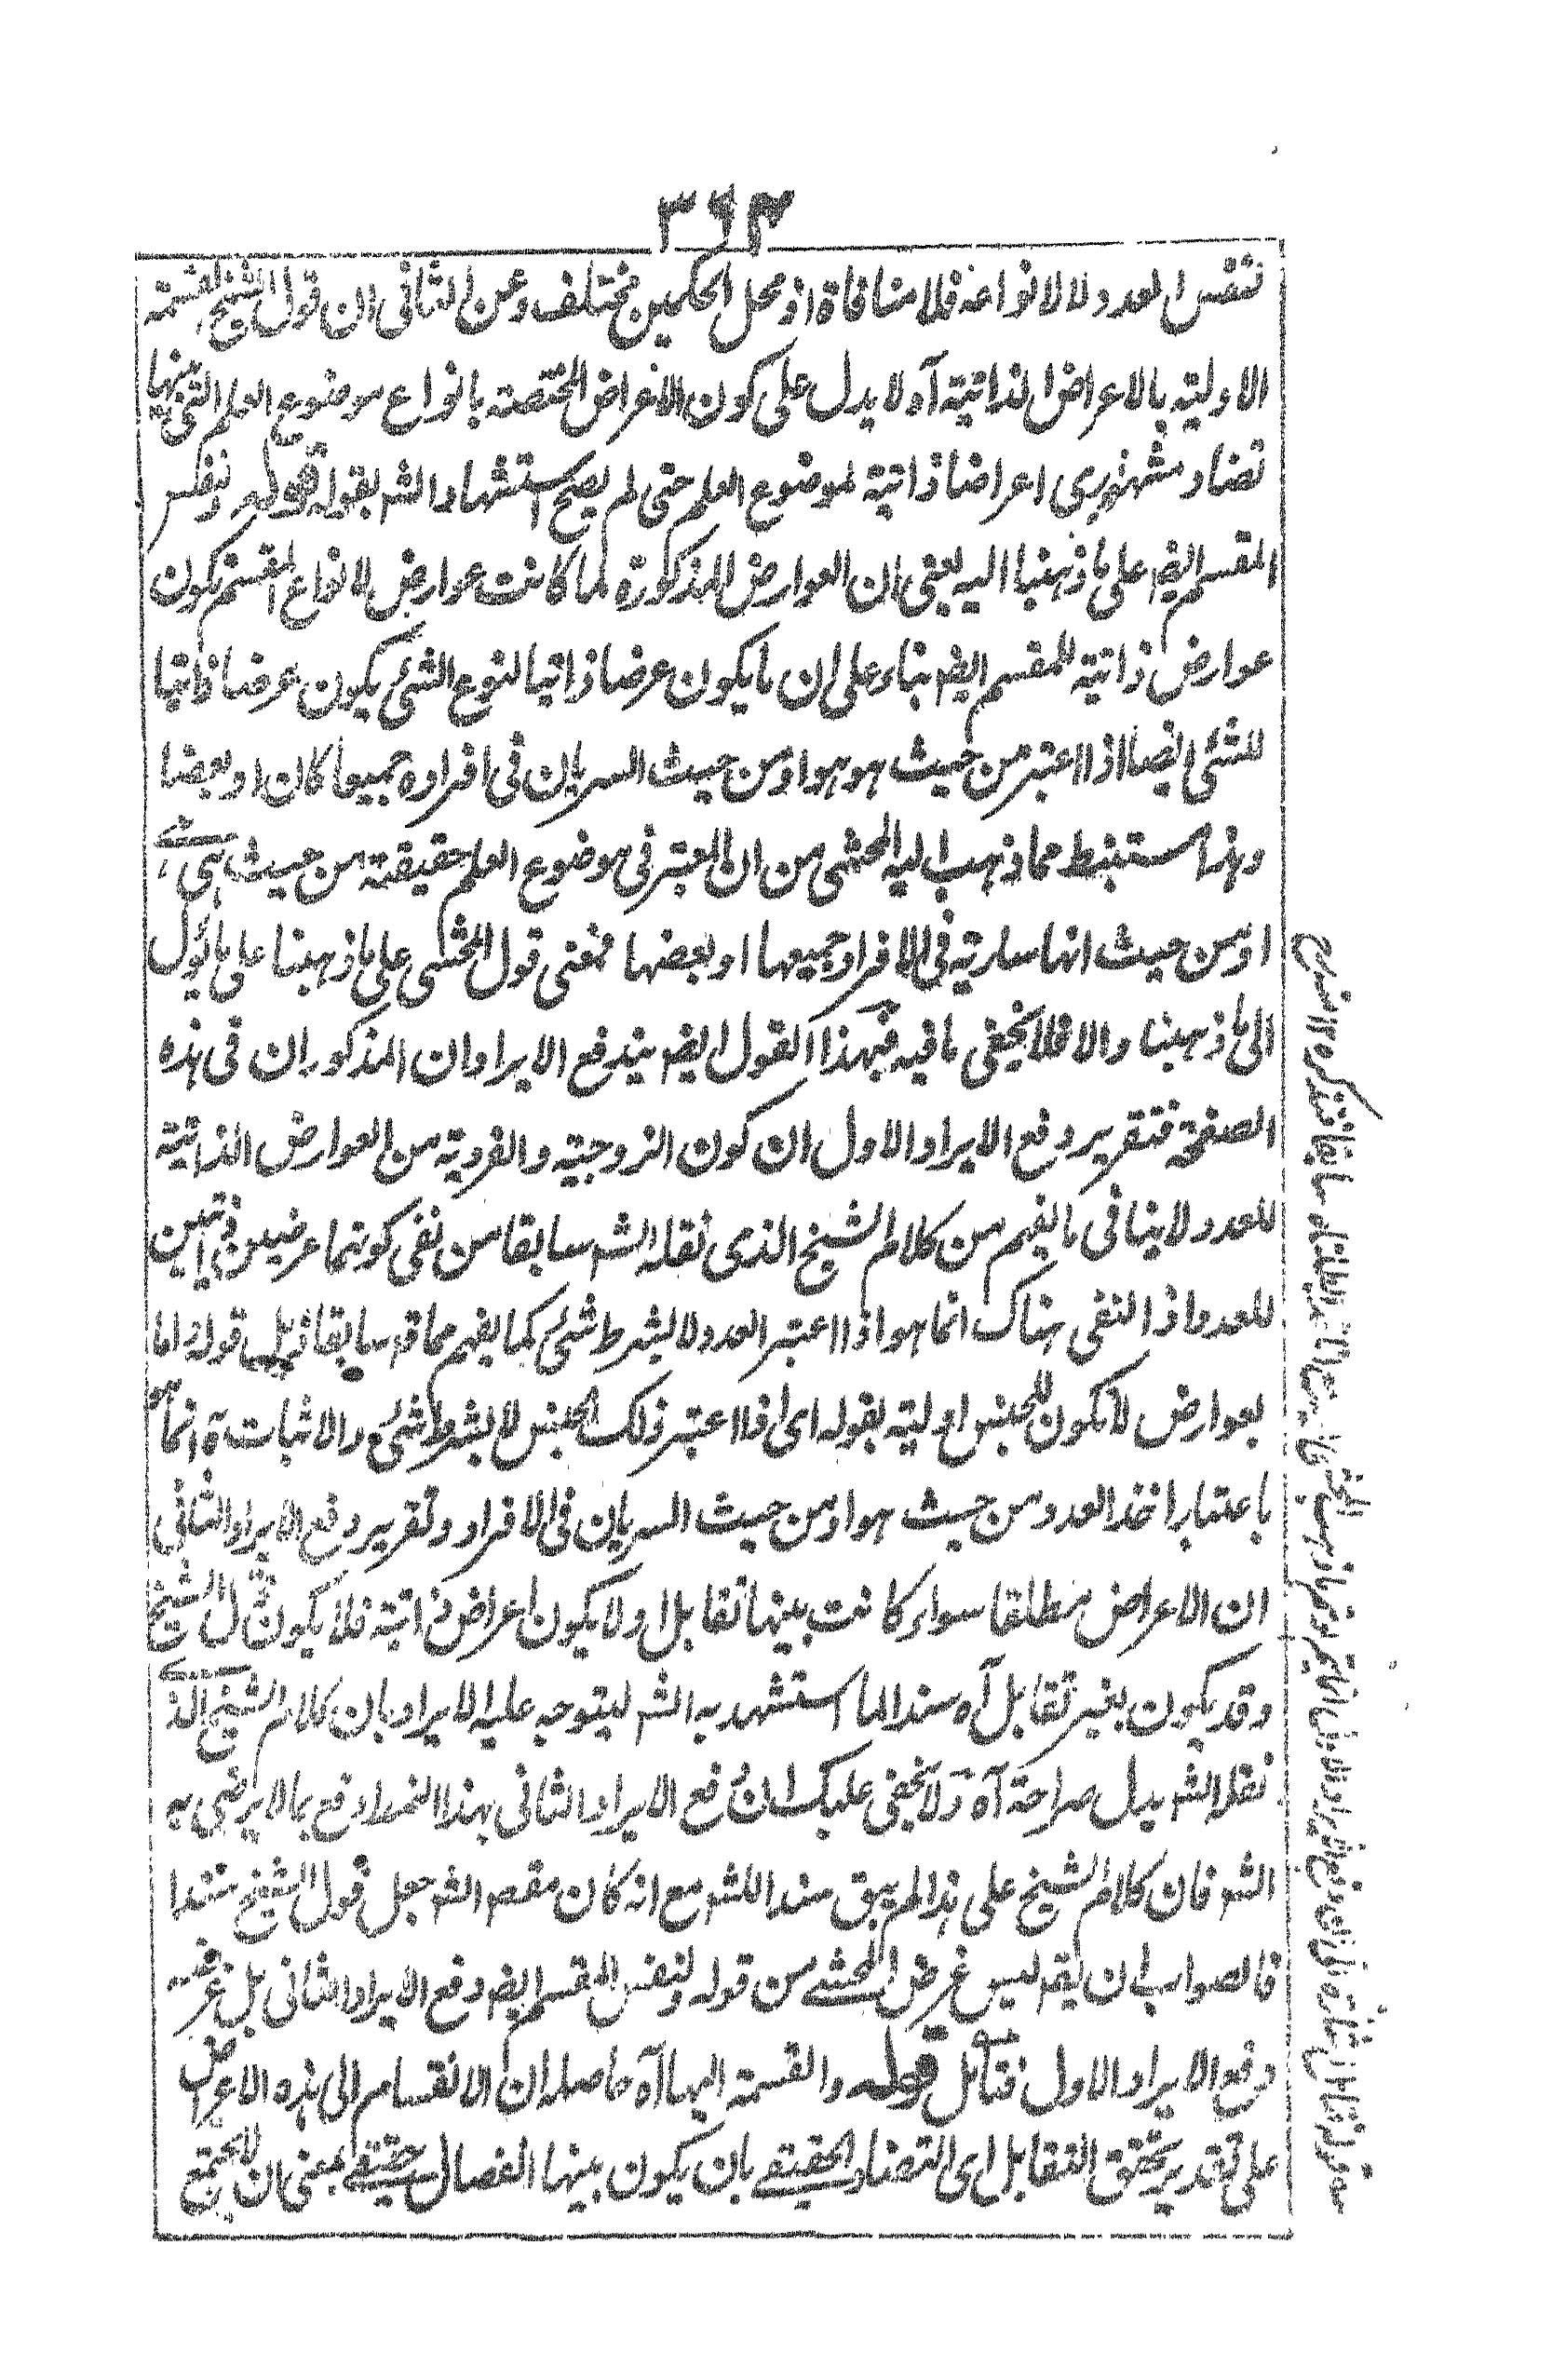 ٣٦٣
لنفس العدد لا لانواعه فلا منافاة اذ محل الحكمين مختلف وعن الثانى ان قول الشيخ القسمة
الاولية بالاعراض الذاتية آه لا يدل على كون الاعراض المختصة بانواع موضوع العلم التى بينها
تضاد مشهورى اعراضا ذاتية لموضوع العلم حتى لم يصح استشهاد الشه بقوله قوله ولنفس
المقسم ايضه على ما ذهبنا اليه يعنى ان العوارض المذكورة لما كانت عوارض لانواع المقسم تكون
عوارض ذاتية للمقسم ايضه بناء على ان ما يكون عرضا ذاتيا لنوع الشئ يكون عرضا ذاتيا
للشئ ايضا اذا اعتبر من حيث هو هو او من حيث السريان فى افراده جميعا كان او بعضا
وهذا مستنبط مما ذهب اليه المحشى من ان المعتبر فى موضوع العلم حقيقته من حيث هى هى
او من حيث انها سارية فى الافراد جميعها او بعضها فمعنى قول المحشى على ما ذهبنا على ما يؤل
الى ما ذهبنا والا فلا يخفى ما فيه فبهذا القول ايضه يندفع الايرادان المذكوران فى هذه
الصفحة فتقرير دفع الايراد الاول ان كون الزوجية والفردية من العوارض الذاتية
للعدد لا ينافى ما يفهم من كلام الشيخ الذى نقله الشه سابقا من نفى كونهما عرضين ذاتيين
للعدد اذ النفى هناك انما هو اذا اعتبر العدد لا بشرط شئ كما يفهم مما قه سابقا ذيل قوله اما
بعوارض لا تكون للجنس اولية بقوله اى اذا اعتبر ذلك الجنس لا بشرط شئ والاثبات ة انما هو
باعتبار اخذ العدد من حيث هو او من حيث السريان فى الافراد وتقرير دفع الايراد الثانى
ان الاعراض مطلقا سواء كانت بينها تقابل او لا يكون اعراض ذاتية فلا يكون قول الشيخ
وقد يكون بغير تقابل آه سندا لما استشهد به الشه ليتوجه عليه الايراد بان كلام الشيخ الذى
نقله الشه يدل صراحة آه ولا يخفى عليك ان دفع الايراد الثانى بهذا النمط دفع بما لا يرضى به
الشه فان كلام الشيخ على هذا لم يبق سندا للشه مع انه كان مقصه الشه جعل قول الشيخ سندا
فالصواب ان يقه ليس غرض المحشى من قوله ولنفس المقسم ايضه دفع الايراد الثانى بل غرضه
دفع الايراد الاول فتأمل قوله والقسمة اليها آه حاصله ان الانقسام الى هذه الاعراض
على تقدير تحقق التقابل اى التضاد الحقيقى بان يكون بينها انفصال حقيقى بمعنى ان لا يجتمع